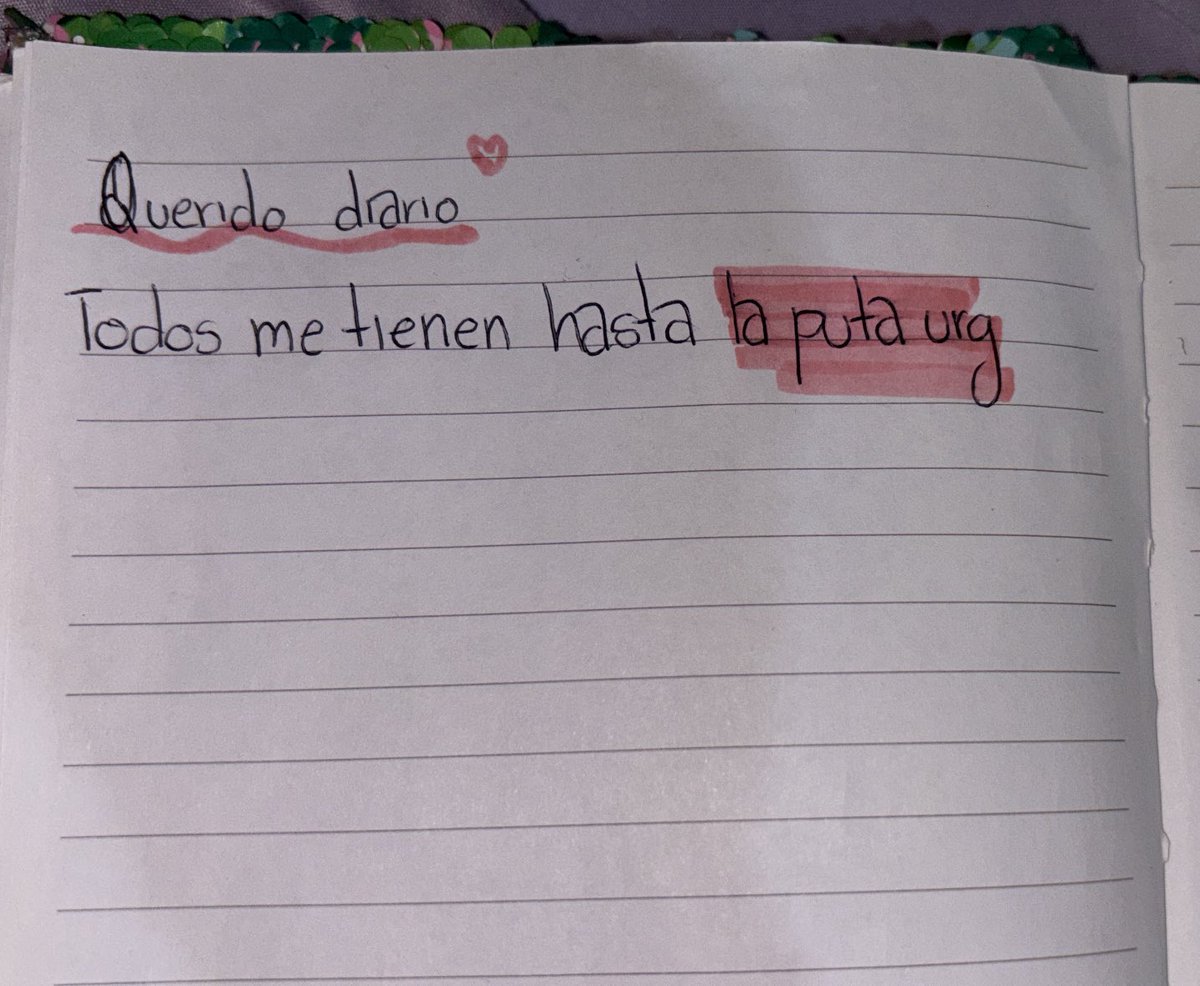 Querido diario
Todos me tienen hasta la puta urg